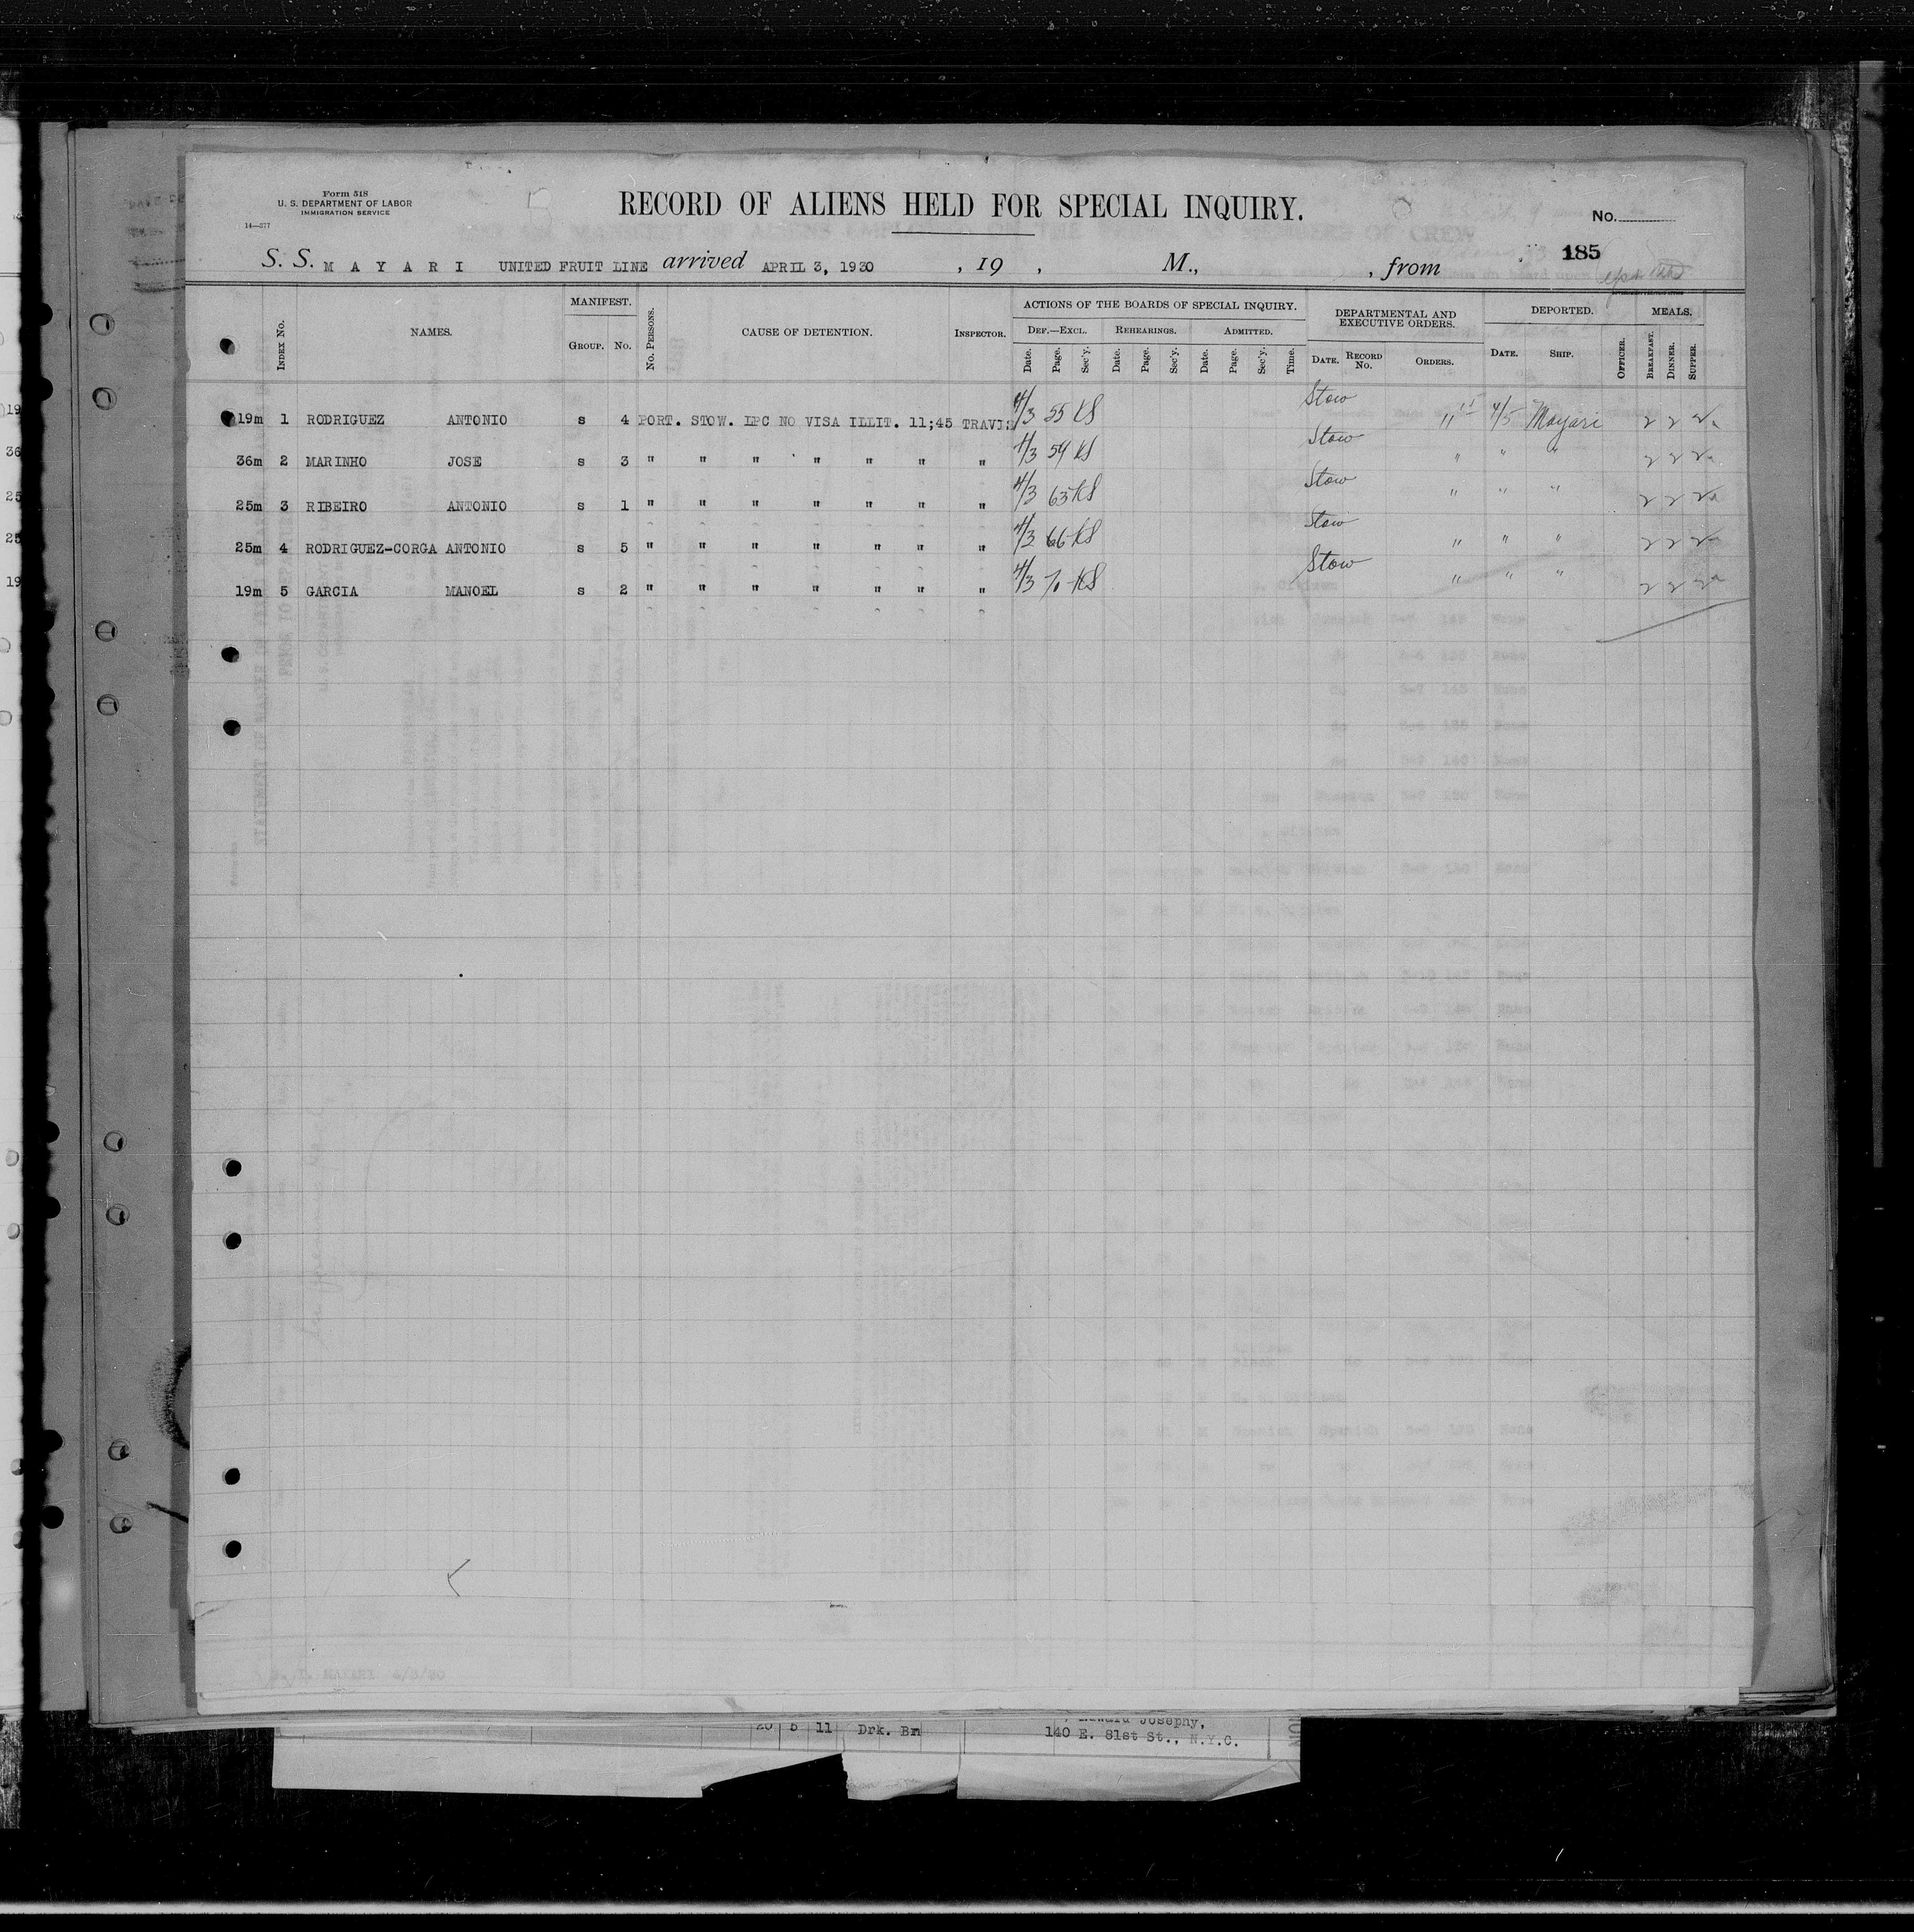 Form 518
U. S. DEPARTMENT OF LABOR
IMMIGRATION SERVICE
14—377
RECORD OF ALIENS HELD FOR SPECIAL INQUIRY.
No.
185
S. S. M A Y A R I UNITED FRUIT LINE arrived APRIL 3, 1930 , 19 , M., , from
INDEX No. NAMES. MANIFEST. GROUP. No. No. PERSONS. CAUSE OF DETENTION. INSPECTOR. ACTIONS OF THE BOARDS OF SPECIAL INQUIRY. DEPARTMENTAL AND EXECUTIVE ORDERS. DEPORTED. MEALS.
DEF.—EXCL. REHEARINGS. ADMITTED.
Date. Page. Sec'y. Date. Page. Sec'y. Date. Page. Sec'y. Time. DATE. RECORD No. ORDERS. DATE. SHIP. OFFICER. BREAKFAST. DINNER. SUPPER.
19m 1 RODRIGUEZ ANTONIO s 4 PORT. STOW. LPC NO VISA ILLIT. 11;45 TRAVIS 4/3 55 KS Stow " " 4/5 Mayari 2 2 2
36m 2 MARINHO JOSE s 3 " " " " " " " 4/3 59 KS Stow " " " 2 2 2
25m 3 RIBEIRO ANTONIO s 1 " " " " " " " 4/3 63 KS Stow " " " 2 2 2
25m 4 RODRIGUEZ-CORGA ANTONIO s 5 " " " " " " " 4/3 66 KS Stow " " " 2 2 2
19m 5 GARCIA MANOEL s 2 " " " " " " " 4/3 70 KS Stow " " " 2 2 2
20 5 11 Drk. Brn
Josephy,
140 E. 81st St., N.Y.C.